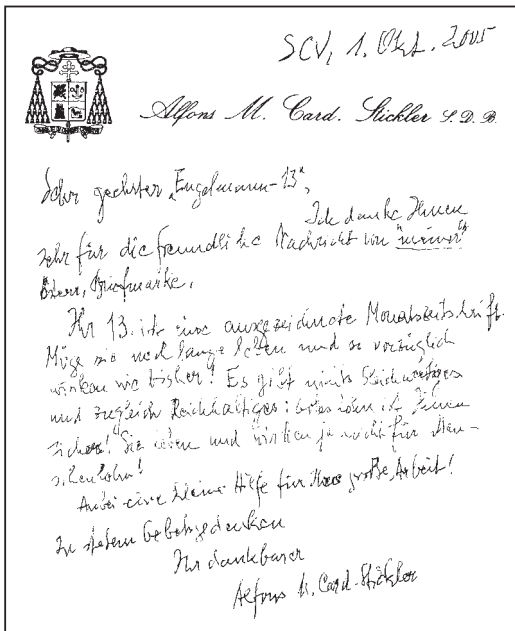 SCV, 1. Okt. 2005
Alfons M. Card. Stickler S. D. B.
Sehr geehrter „Engelmann-13“,
Ich danke Ihnen
sehr für die freundliche Nachricht von "meiner"
österr. Briefmarke.
Ihr 13. ist eine ausgezeichnete Monatszeitschrift.
Möge sie noch lange leben und so vorzüglich
wirken wie bisher! Es gibt nichts Gleichwertiges
und zugleich Reichhaltiges: ist Ihnen
sicher! Sie leben und wirken ja nicht für Men-
schenlohn!
Anbei eine kleine Hilfe für Ihre große Arbeit!
In stetem Gebetsgedenken
Ihr dankbarer
Alfons M. Card. Stickler